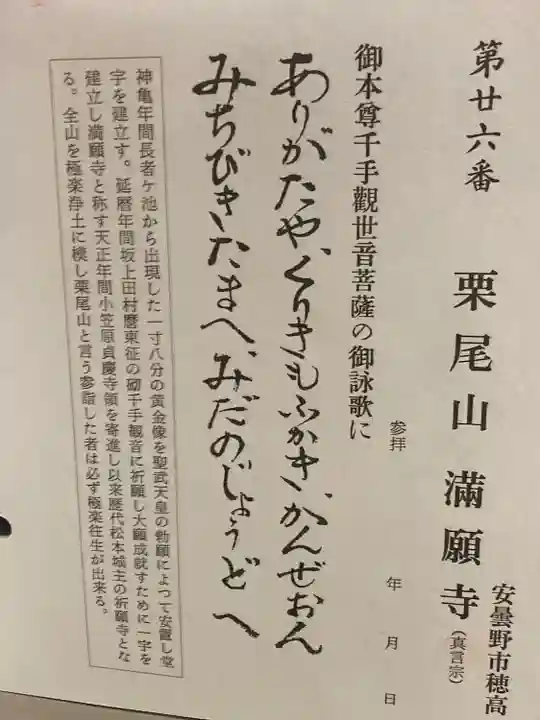 第廿六番 栗尾山 滿願寺(真言宗)
安曇野市穂高
参拝 年 月 日
御本尊千手觀世音菩薩の御詠歌に
ありがたや、くりきもふかき、かんぜおん
みちびきたまへ、みだのじょうどへ
神亀年間長者ヶ池から出現した一寸八分の黄金像を聖武天皇の勅願によつて安置し堂
宇を建立す。延暦年間坂上田村麿東征の砌千手観音に祈願し大願成就すために一宇を
建立し満願寺と称す天正年間小笠原貞慶寺領を寄進し以来歴代松本城主の祈願寺とな
る。全山を極楽浄土に模し栗尾山と言う参詣した者は必ず極楽往生が出来る。